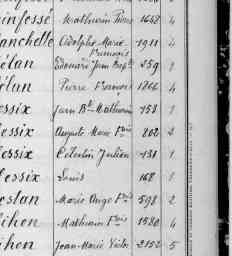 infossé Mathurin Pierre 1668 4
anchette Adolphe Marie François 1911 4
élan Edouard Jean Bapte 259 2
élan Pierre François 1266 4
essix Jean Bte Mathurin 158 1
essix Auguste Marie Fois 202 2
essix Célestin Julien 131 1
essix Louis 168 1
estan Marie Ange Fois 598 2
ihon Mathurin Fois 1580 4
ihon Jean-Marie Victor 2152 5